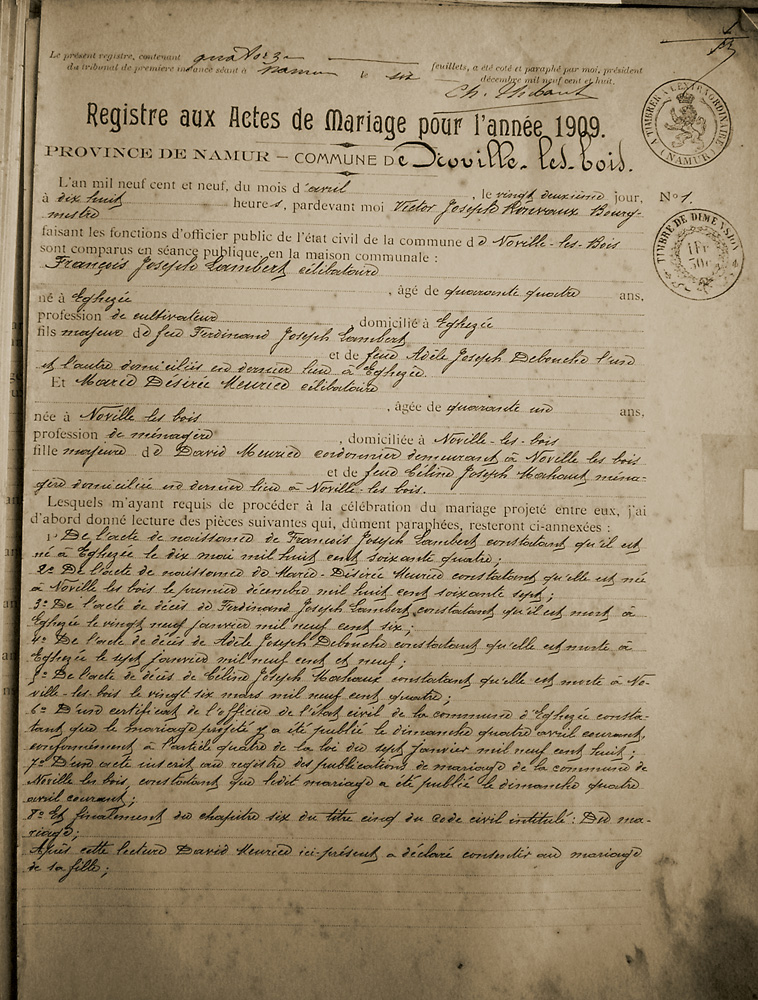 Le présent registre, contenant quatorze feuillets, a été coté et paraphé par moi, président
du tribunal de première instance séant à Namur le six décembre mil neuf cent et huit.
Ch. Thibaut
Registre aux Actes de Mariage pour l'année 1909.
PROVINCE DE NAMUR – COMMUNE De Noville-les-bois.
TIMBRE A L'EXTRAORDINAIRE
(NAMUR)
L'an mil neuf cent et neuf, du mois d'avril, le vingt deuxième jour,
N° 1.
à dix huit heures, pardevant moi Victor Joseph Bourg-
mestre
faisant les fonctions d'officier public de l'état civil de la commune de Noville-les-Bois
sont comparus en séance publique, en la maison communale :
TIMBRE DE DIMENSION
1 Fr
30c
François Joseph Lambert célibataire
né à Eghezée, âgé de quarante quatre ans,
profession de cultivateur domicilié à Eghezée
fils majeur de feu Ferdinand Joseph Lambert
et de feue Adèle Joseph Debouche l'un
et l'autre domiciliés en dernier lieu à Eghezée.
Et Marie Désirée Meurice célibataire
née à Noville les bois, âgée de quarante un ans,
profession de ménagère, domiciliée à Noville-les-bois
fille majeure de David Meurice cordonnier demeurant à Noville les bois
et de feue Céline Joseph Mahaux ména-
gère domiciliée en dernier lieu à Noville-les bois.
Lesquels m'ayant requis de procéder à la célébration du mariage projeté entre eux, j'ai
d'abord donné lecture des pièces suivantes qui, dûment paraphées, resteront ci-annexées :
1° De l'acte de naissance de François Joseph Lambert constatant qu'il est
né à Eghezée le dix mai mil huit cent soixante quatre ;
2° De l'acte de naissance de Marie-Désirée Meurice constatant qu'elle est née
à Noville les bois le premier décembre mil huit cent soixante sept ;
3° De l'acte de décès de Ferdinand Joseph Lambert constatant qu'il est mort à
Eghezée le vingt neuf janvier mil neuf cent six ;
4° De l'acte de décès de Adèle Joseph Debouche constatant qu'elle est morte à
Eghezée le sept janvier mil neuf cent et neuf ;
5° De l'acte de décès de Céline Joseph Mahaux constatant qu'elle est morte à No-
ville-les-bois le vingt six mars mil neuf cent quatre ;
6° D'un certificat de l'officier de l'état civil de la commune d'Eghezée consta-
tant que le mariage projeté y a été publié le dimanche quatre avril courant,
conformément à l'article quatre de la loi du sept janvier mil neuf cent huit ;
7° D'un acte inscrit au registre des publications de mariage de la commune de
Noville les bois, constatant que ledit mariage a été publié le dimanche quatre
avril courant ;
8° Et finalement du chapitre six du titre cinq du code civil intitulé : Du ma-
riage ;
Après cette lecture David Meurice ici-présent a déclaré consentir au mariage
de sa fille ;